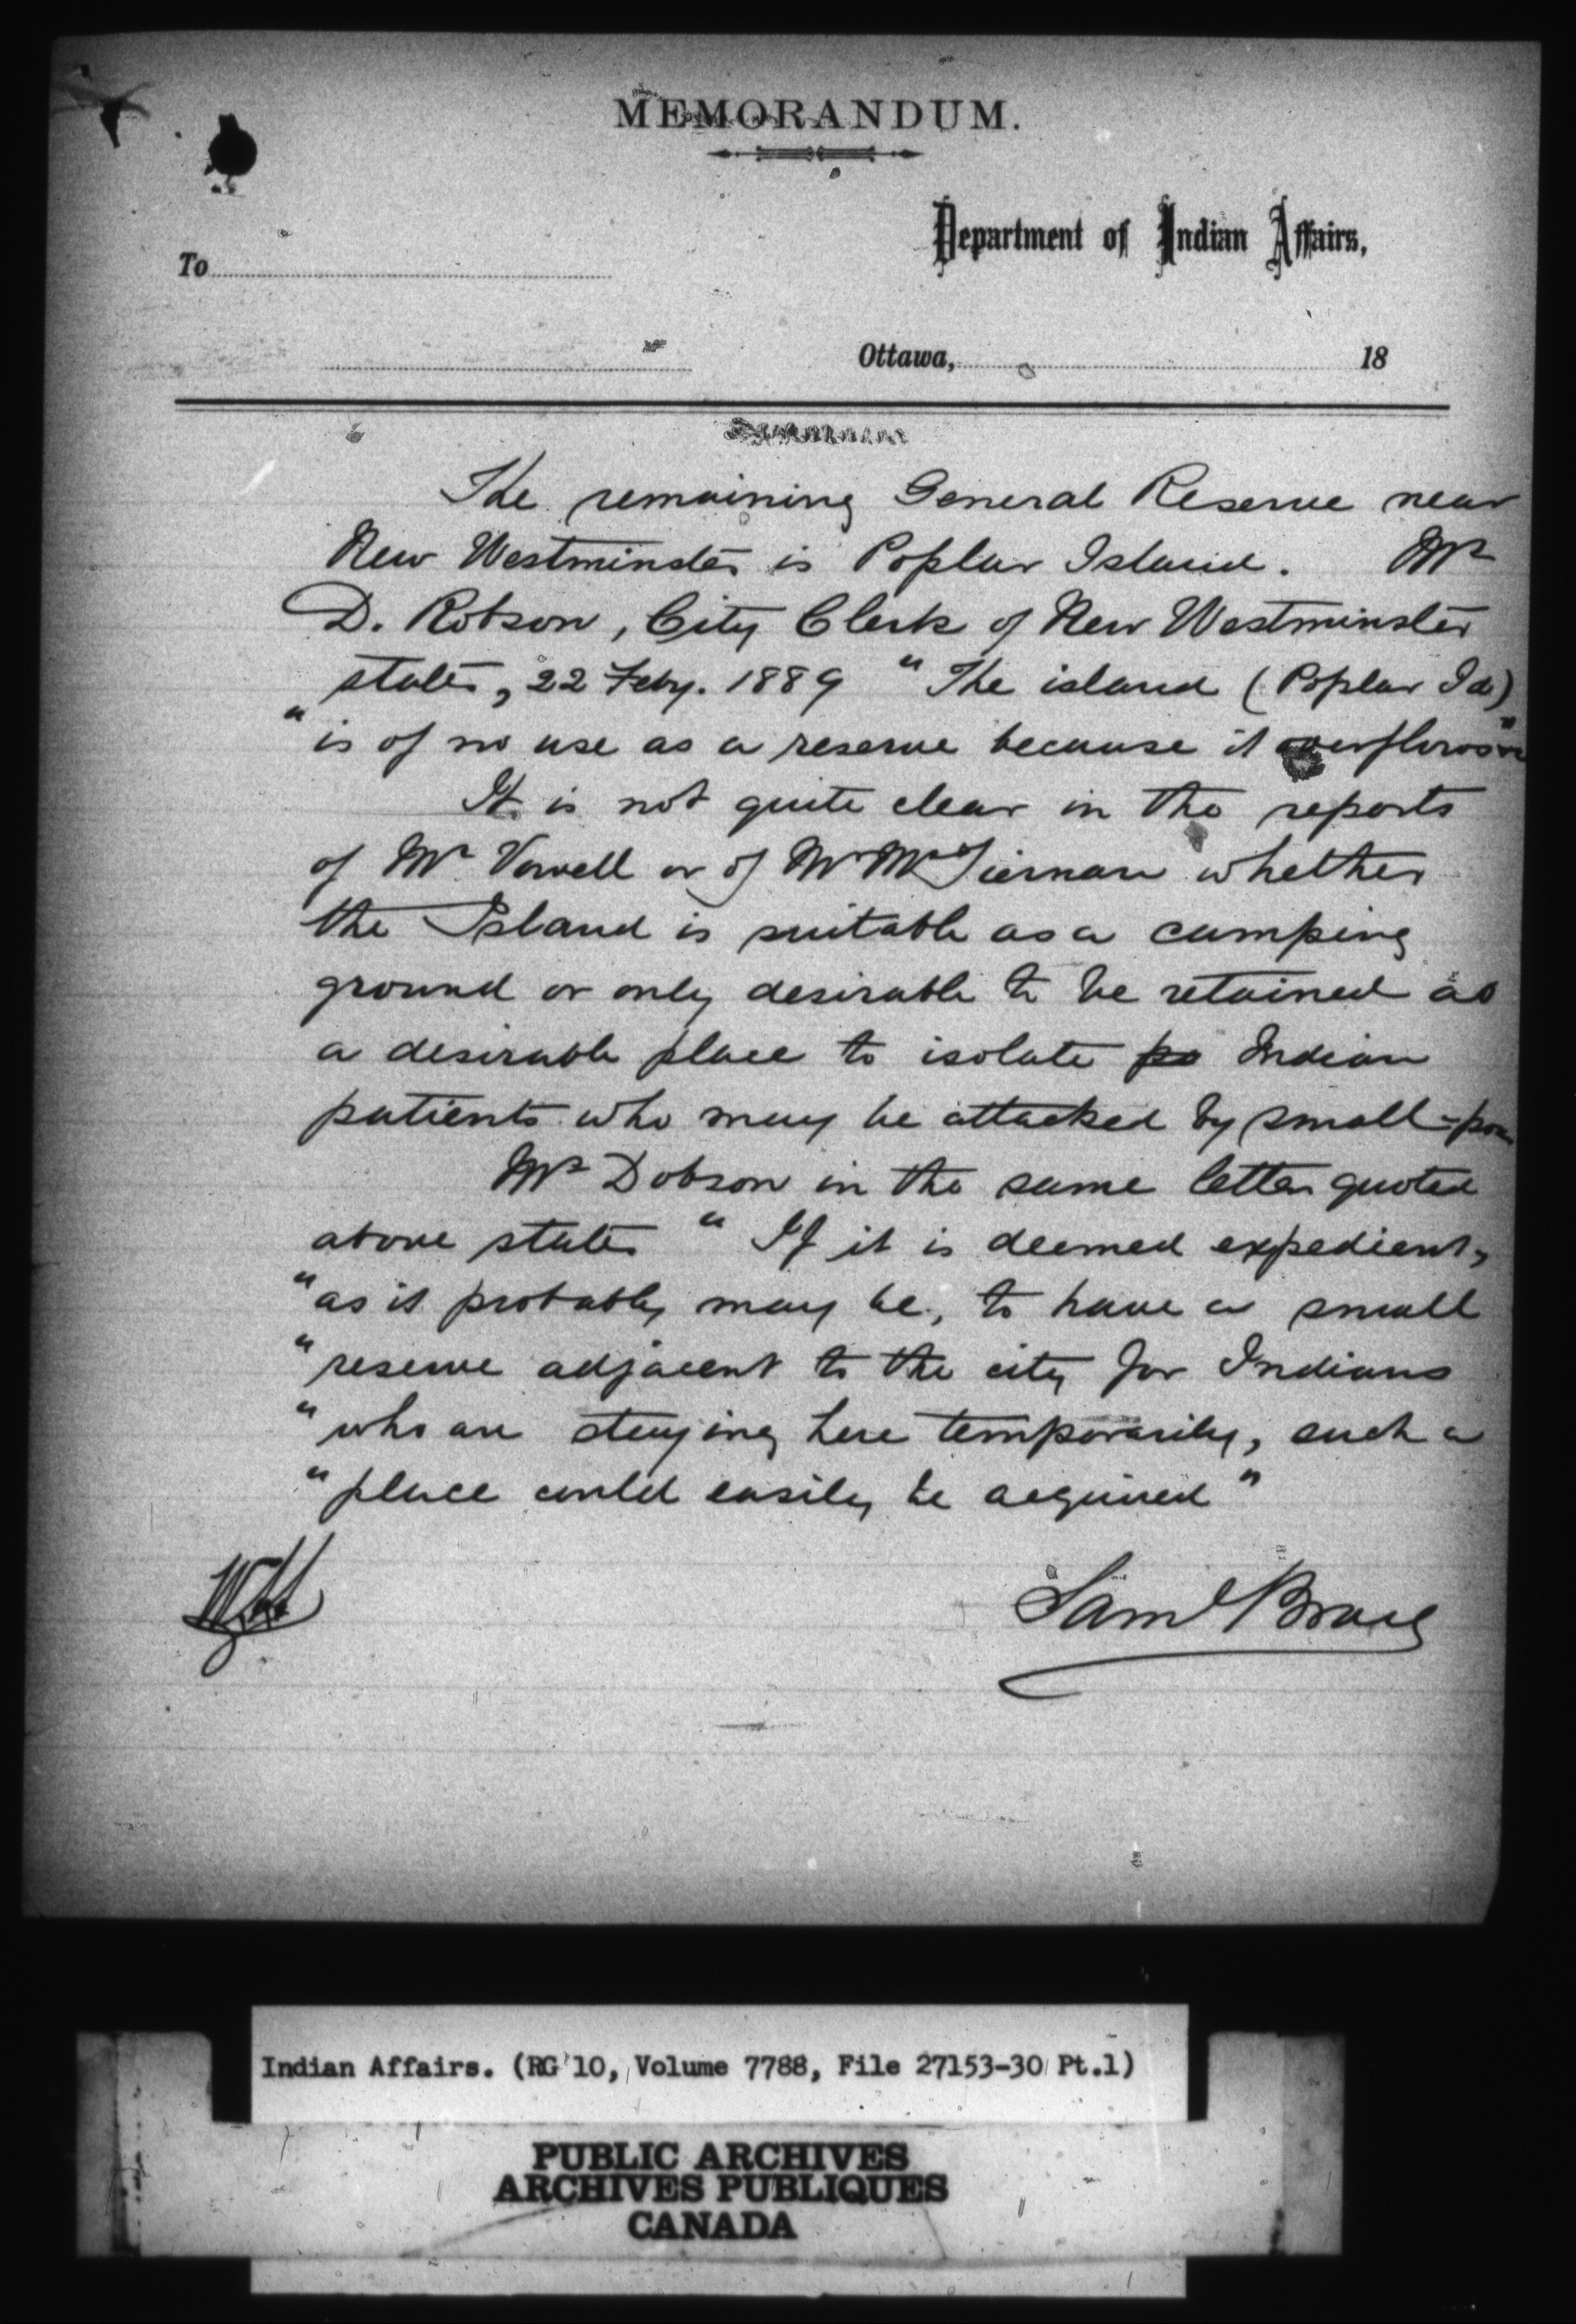 MEMORANDUM.
Department of Indian Affairs,
To
Ottawa, 18
The remaining General Reserve near
New Westminster is Poplar Island. Mr
D. Robson, City Clerk of New Westminster
states, 22 Feby. 1889 "The island (Poplar Id)
"is of no use as a reserve because it overflows"
It is not quite clear in the reports
of Mr Vowell or of Mr McTiernan whether
the Island is suitable as a camping
ground or only desirable to be retained as
a desirable place to isolate pa Indian
patients who may be attacked by small-pox
Mr Dobson in the same letter quoted
above states "If it is deemed expedient,
"as it probably may be, to have a small
"reserve adjacent to the city for Indians
"who are staying here temporarily, such a
"place could easily be acquired"
Saml Bray
Indian Affairs. (RG 10, Volume 7788, File 27153-30 Pt.1)
PUBLIC ARCHIVES
ARCHIVES PUBLIQUES
CANADA